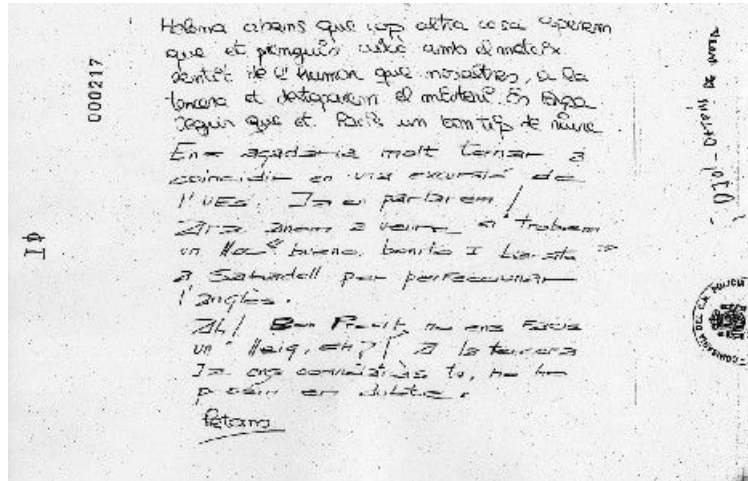 Helena abans que cap altra cosa esperem
que et prenguis això amb el mateix
sentit de l'humor que nosaltres, a la
tercera et destaparem el misteri. Es
segur que et facis un bon tip de riure
Ens agadaria molt tornar a
coincidir en una excursió de
l'UES. Ja en parlarem!
Ara anem a veure si trobem
un lloc "bueno, bonito I barato"
a Sabadell per perfeccionar
l'anglès.
Ah! Bon Profit, no ens facis
un lleig, eh?! A la tercera
Ja ens convidaràs tu, no ho
posem en dubte.
Petons
000217
41
DE
POLICIA